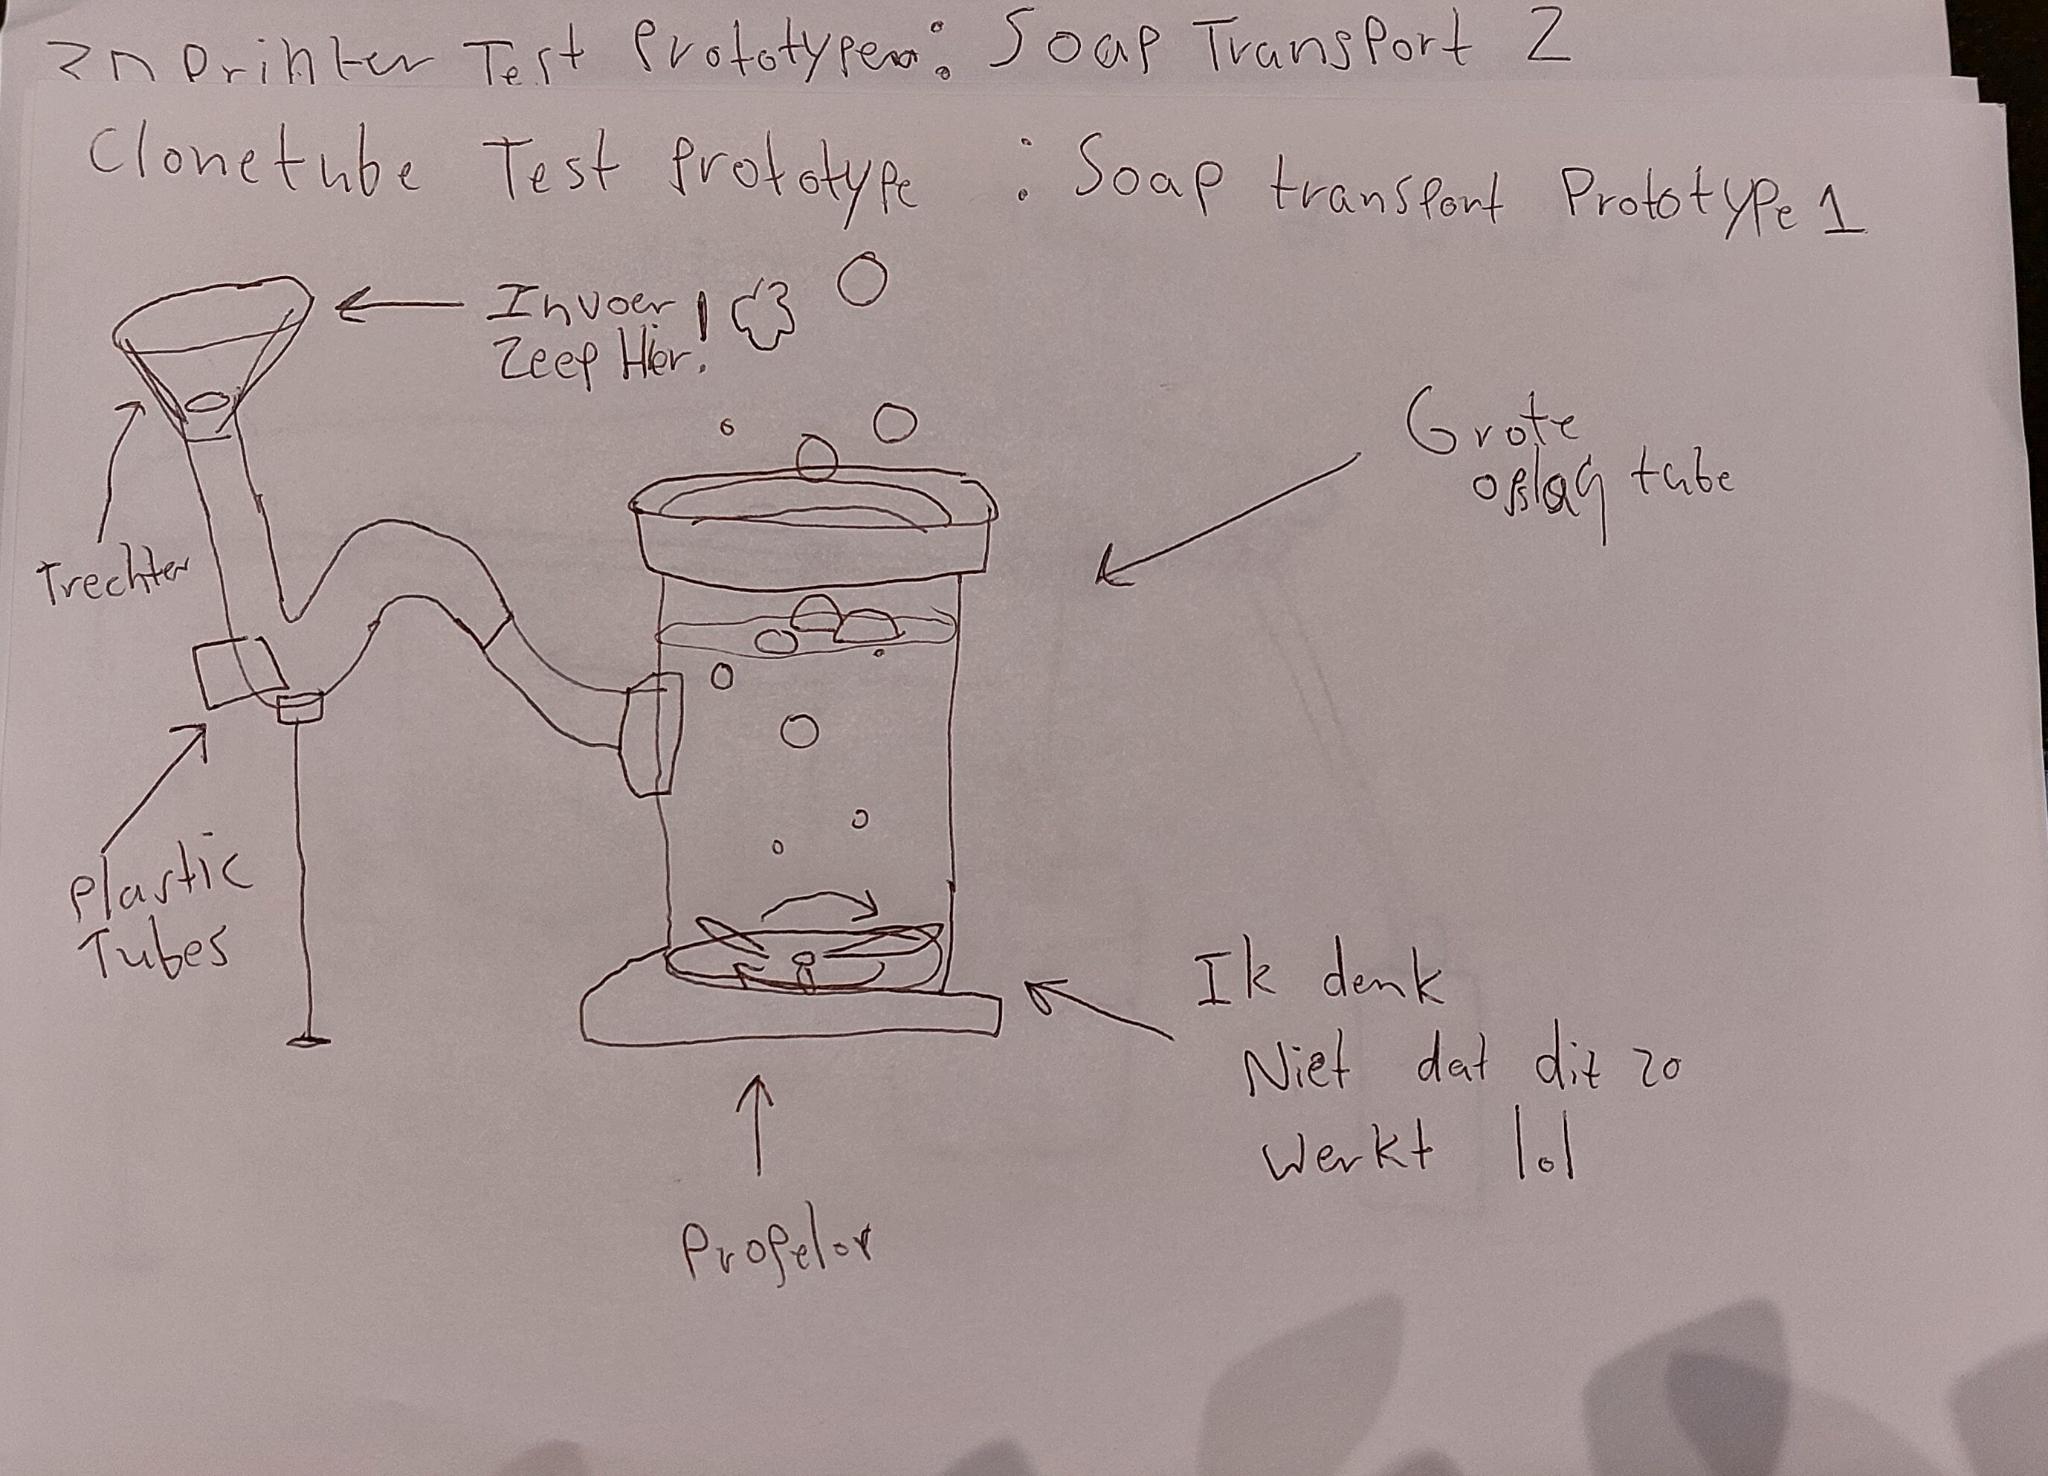 Printer Test Prototypen: Soap Transport 2
Clonetube Test Prototype : Soap transport Prototype 1
Invoer
Zeep Hier!
Grote
opslag tube
Trechter
Plastic
Tubes
Ik denk
Niet dat dit zo
werkt lol
Propelor